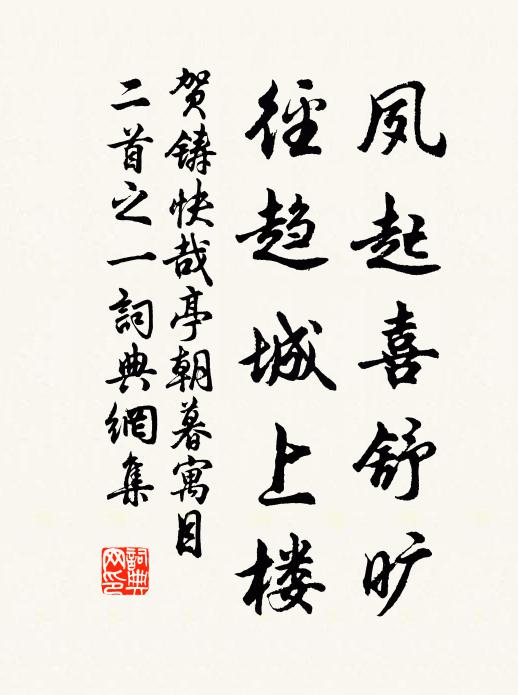 夙起喜舒旷
径趋城上楼
贺铸快哉亭朝暮寓目
二首之一詞典網集
詞典
网印